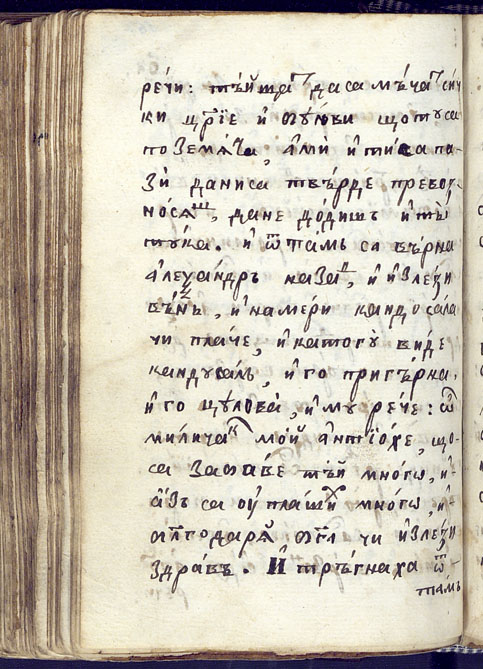 рéчи: тъ́й щат да са мѣ́чат си́ч
ки цр҃їе и҆ ѹ҆ю́ви що ту са
по земѧ́та, а҆мѝ и҆ ти са па
зѝ да ни са твъ́рде превоз
но́сѧш, да не до́диш и҆ ты̀
тука. и҆ ѿта́мь са вь́рна
а҆леѯа́ндрь назат, и҆ и҆злѐзи
въ́нь, и҆ намѐри кандоса́ла
чи пла́че, и҆ като гѹ̀ ви́де
кандуса́ль, и҆ го пригъ́рна.
и҆ го цѹлова̀, и҆ му рѐче: ѽ
ми́личак мо́й а҆нтїо́хе, що
са забáве тъ́й мно́гѡ, и҆
а҆́зь са ѹ҆пла́ших мно́гѡ, и҆
бл҃годарѧ̀ бг҃а чи и҆злѐзи
здра́въ. И҆ трь́гнаха ѿ
тáмъ